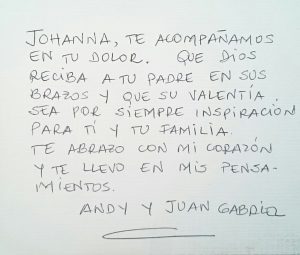 JOHANNA, TE ACOMPAÑAMOS
EN TU DOLOR. QUE DIOS
RECIBA A TU PADRE EN SUS
BRAZOS Y QUE SU VALENTÍA
SEA POR SIEMPRE INSPIRACIÓN
PARA TÍ Y TU FAMILIA.
TE ABRAZO CON MI CORAZÓN
Y TE LLEVO EN MIS PENSA-
MIENTOS.
ANDY Y JUAN GABRIEL